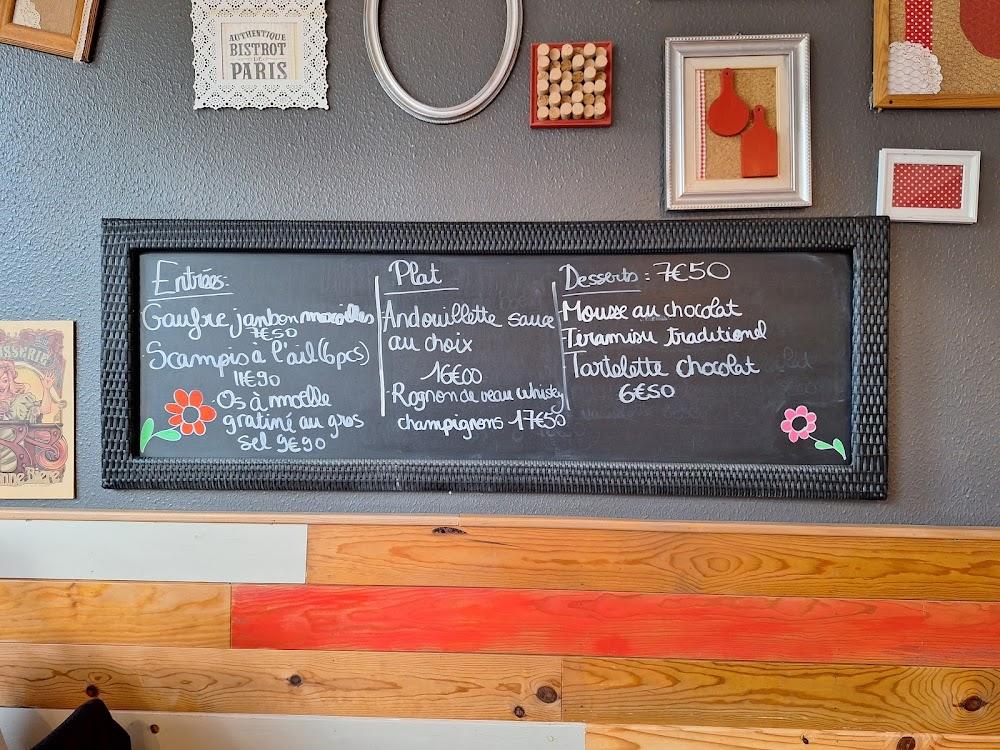 AUTHENTIQUE
BISTROT
DE
PARIS
Entrées:
Gaufre jambon maroilles
7€50
Scampis à l'ail (6pcs)
11€90
Os à moelle
gratiné au gros
sel 9€90
Plat
Andouillette sauce
au choix
16€00
Rognon de veau whisky
champignons 17€50
Desserts : 7€50
Mousse au chocolat
Tiramisu traditionel
Tartelette chocolat
6€50